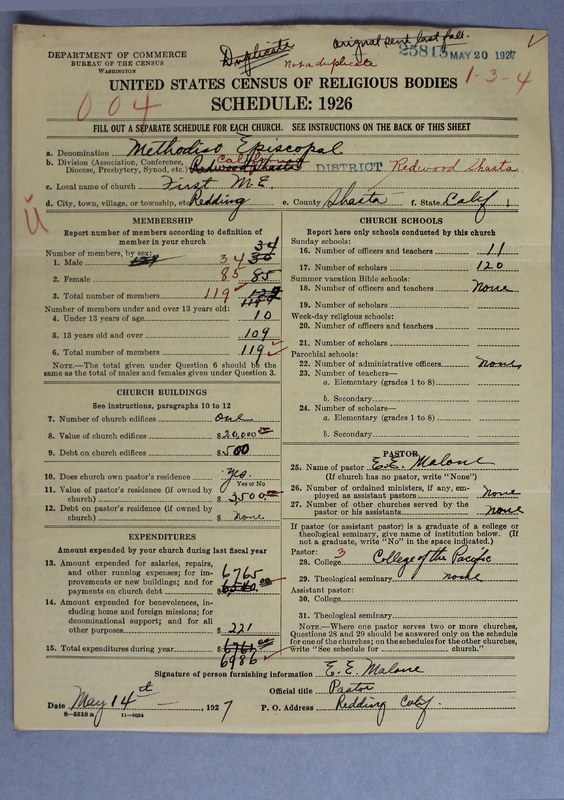 DEPARTMENT OF COMMERCE
BUREAU OF THE CENSUS
WASHINGTON
Duplicate
Original sent last fall.
Not a duplicate
25813 MAY 20 1927
1-3-4
UNITED STATES CENSUS OF RELIGIOUS BODIES
004
SCHEDULE: 1926
FILL OUT A SEPARATE SCHEDULE FOR EACH CHURCH. SEE INSTRUCTIONS ON THE BACK OF THIS SHEET
a. Denomination Methodist Episcopal
b. Division (Association, Conference, Diocese, Presbytery, Synod, etc.) Redwood Shasta California DISTRICT Redwood Shasta
c. Local name of church First M.E.
d. City, town, village, or township, etc. Redding e. County Shasta f. State Calif
MEMBERSHIP
Report number of members according to definition of
member in your church
Number of members, by sex:
1. Male 34 34
2. Female 85 85
3. Total number of members 119
Number of members under and over 13 years old:
4. Under 13 years of age 10
5. 13 years old and over 109
6. Total number of members 119
NOTE.—The total given under Question 6 should be the
same as the total of males and females given under Question 3.
CHURCH BUILDINGS
See instructions, paragraphs 10 to 12
7. Number of church edifices one
8. Value of church edifices $20,000 00
9. Debt on church edifices $500
10. Does church own pastor's residence? Yes.
Yes or No
11. Value of pastor's residence (if owned by
church) $3,500 00
12. Debt on pastor's residence (if owned by
church) $ None
EXPENDITURES
Amount expended by your church during last fiscal year
13. Amount expended for salaries, repairs,
and other running expenses; for im-
provements or new buildings; and for
payments on church debt $ 6765
14. Amount expended for benevolences, in-
cluding home and foreign missions; for
denominational support; and for all
other purposes $ 221
15. Total expenditures during year $ 6986
CHURCH SCHOOLS
Report here only schools conducted by this church
Sunday schools:
16. Number of officers and teachers 11
17. Number of scholars 120
Summer vacation Bible schools:
18. Number of officers and teachers None
19. Number of scholars
Week-day religious schools:
20. Number of officers and teachers
21. Number of scholars
Parochial schools:
22. Number of administrative officers None
23. Number of teachers—
a. Elementary (grades 1 to 8)
b. Secondary
24. Number of scholars—
a. Elementary (grades 1 to 8)
b. Secondary $
PASTOR
25. Name of pastor E.E. Malone
(If church has no pastor, write "None")
26. Number of ordained ministers, if any, em-
ployed as assistant pastors None
27. Number of other churches served by the
pastor or his assistants None
If pastor (or assistant pastor) is a graduate of a college or
theological seminary, give name of institution below. (If
not a graduate, write "No" in the space indicated.)
Pastor: 3
28. College College of the Pacific
29. Theological seminary none
Assistant pastor:
30. College
31. Theological seminary
NOTE.—Where one pastor serves two or more churches,
Questions 28 and 29 should be answered only on the schedule
for one of the churches; on the schedules for the other churches,
write "See schedule for church."
Signature of person furnishing information E. E. Malone
Official title Pastor
Date May 14th, 1927 P. O. Address Redding Calif.
8-5518a 11-9054